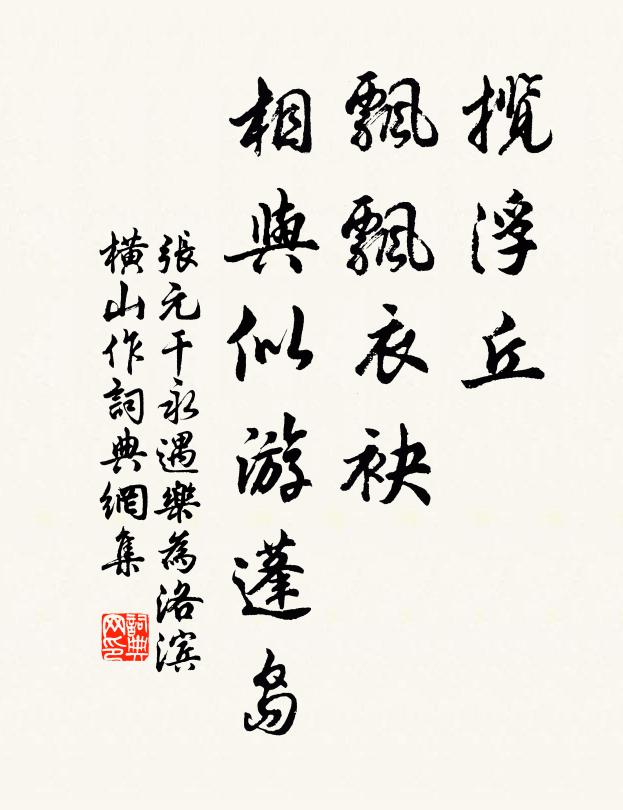 揽浮丘
飄飄衣袂
相與似游蓬島
張元干永遇樂為洛滨
橫山作詞典網集
詞典
网印